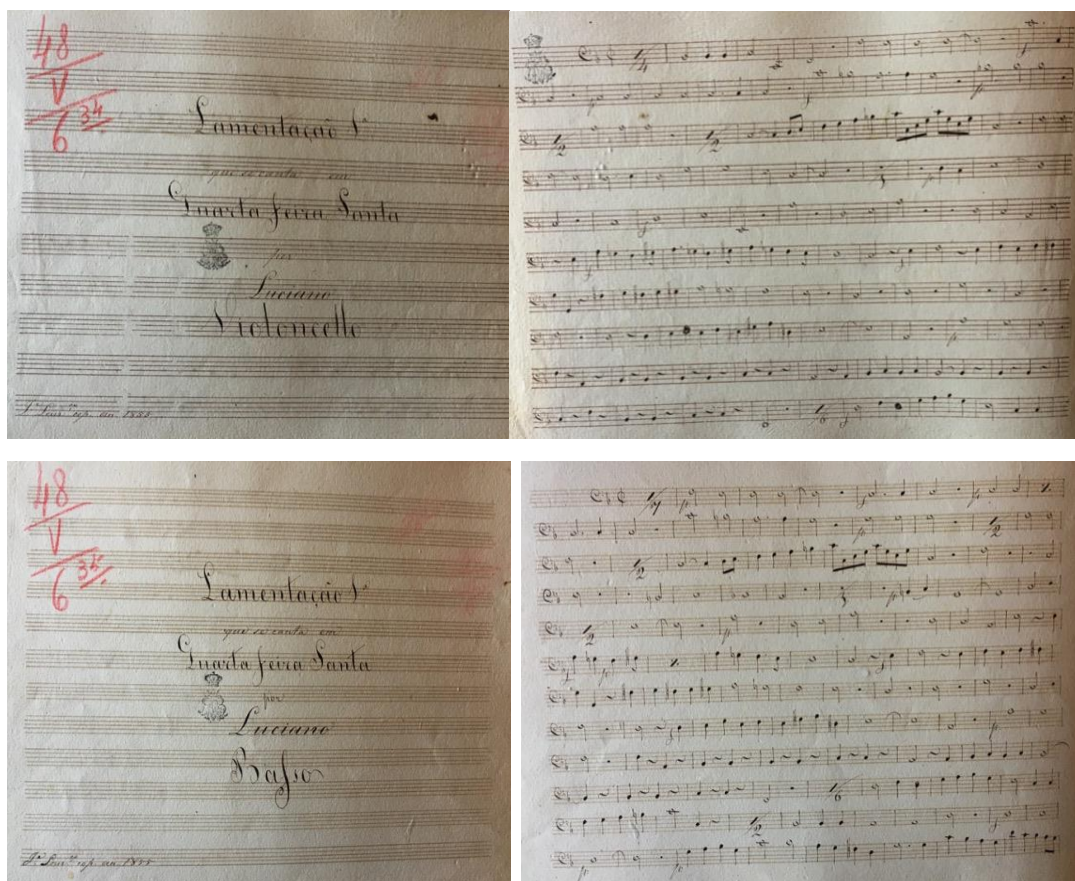 48
V
6 34
Lamentação 1ª
que se canta em
Quarta feira Santa
por
Luciano
Violoncello
cop. em 1885
48
V
6 34
Lamentação 1ª
que se canta em
Quarta feira Santa
por
Luciano
Basso
cop. em 1885